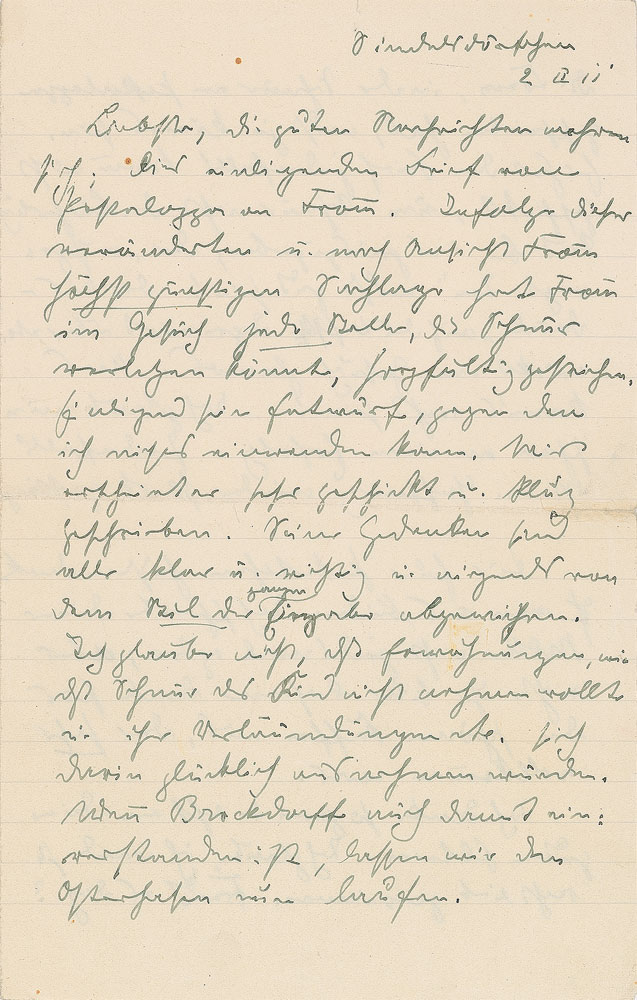 Sindelsdörfchen
2 II 11
Liebste, die guten Nachrichten mehren
sich. Lies einliegenden Brief von
Pappalozza an Fromm. Infolge dieser
veränderten u. nach Ansicht Fromm
höchst günstigen Sachlage hat Fromm
im Gesuch jede Stelle, die Schnür
verletzen könnte, sorgfältig gestrichen.
Einliegend sein Entwurf, gegen den
ich nichts einwenden kann. Mir
erscheint er sehr geschickt u. klug
geschrieben. Seine Gedanken sind
alle klar u. richtig u. nirgends von
dem Stil der ganzen Eingabe abgewichen.
Ich glaube nicht, daß Erwähnungen, wie
daß Schnür das Kind nicht nehmen wollte
u. ihre Verläumdungen etc. sich
darin glücklich ausnehmen würden.
Wenn Brockdorff auch damit ein-
verstanden ist, lassen wir den
Osterhasen nun laufen.